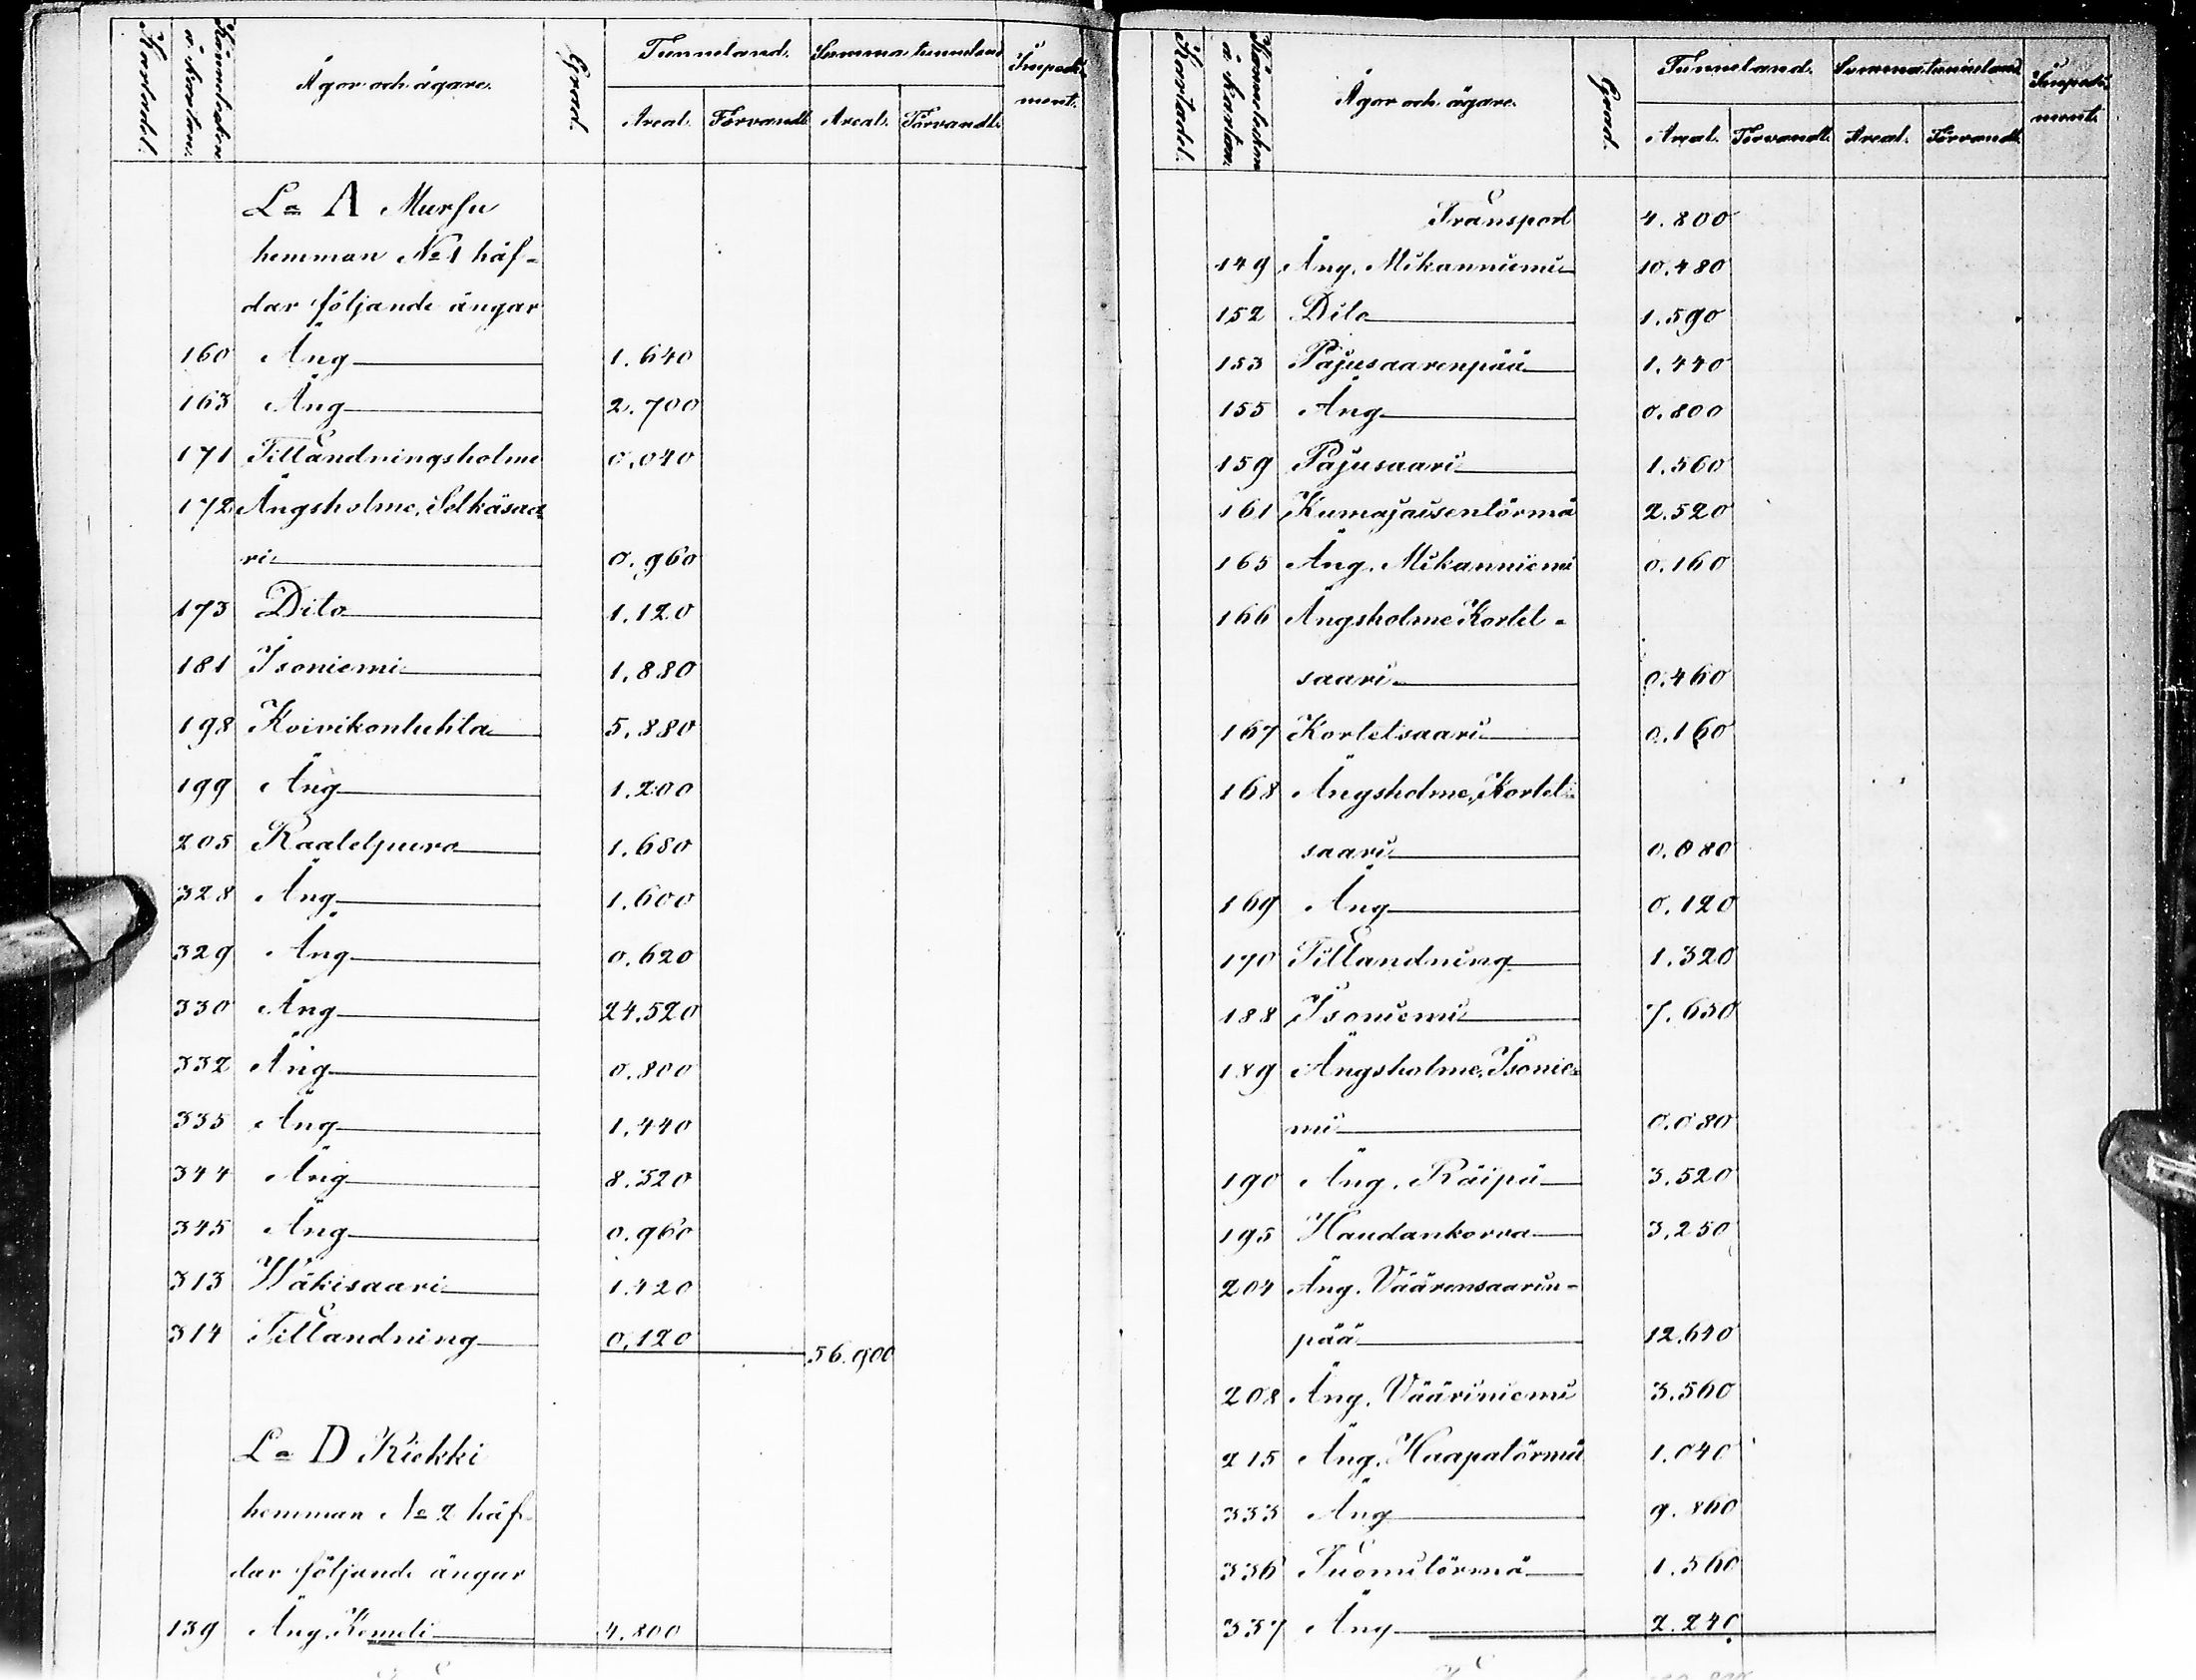 Kartadel.
Kännetecken å kartan.
Ägor och ägare.
Grad.
Tunneland.
Areal. Förvandl.
Summa tunneland
Areal. Förvandl.
Impediment.
La A Mursu
hemman No 1 häf-
dar följande ängar
160 Äng 1.640
163 Äng 2.700
171 Tillandningsholme 0.040
172 Ängsholme, Selkäsaa-
ri 0.960
173 Dito 1.120
181 Isoniemi 1.880
198 Koivikonluhta 5.880
199 Äng 1.200
205 Raatelpuro 1.680
328 Äng 1.600
329 Äng 0.620
330 Äng 24.520
332 Äng 0.800
335 Äng 1.440
344 Äng 8.320
345 Äng 0.960
313 Wäkisaari 1.420
314 Tillandning 0.120 56.900
La D Kiekki
hemman No 2 häf-
dar följande ängar
139 Äng, Kemeli 4.800
Kartadel.
Kännetecken å kartan.
Ägor och ägare.
Grad.
Tunneland.
Areal. Förvandl.
Summa tunneland
Areal. Förvandl.
Impediment.
Transport 4.800
149 Äng, Mikanniemi 10.480
152 Dito 1.590
153 Pajusaarenpää 1.440
155 Äng 0.800
159 Pajusaari 1.560
161 Kumajaisentörmä 2.520
165 Äng, Mikanniemi 0.160
166 Ängsholme Kortet-
saari 0.460
167 Kortetsaari 0.160
168 Ängsholme, Kortet-
saari 0.080
169 Äng 0.120
170 Tillandning 1.320
188 Isoniemi 7.650
189 Ängsholme, Isonie-
mi 0.080
190 Äng, Räipä 3.520
195 Haudankorva 3.250
204 Äng, Väärensaarin-
pää 12.640
208 Äng, Vääriniemi 3.560
215 Äng, Haapatörmä 1.040
333 Äng 9.860
336 Tuomitörmä 1.560
337 Äng 2.240